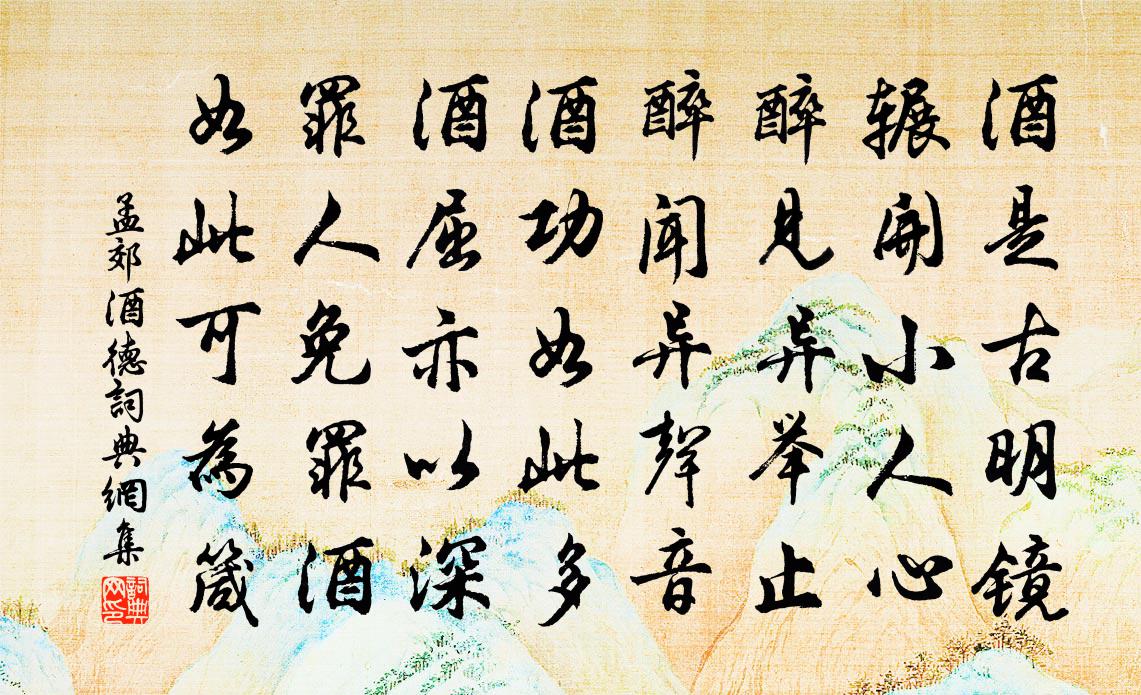 酒是古明镜
辗开小人心
醉见异举止
醉闻异聲音
酒功如此多
酒屈亦以深
罪人免罪酒
如此可為箴
孟郊酒德詞典網集
詞典网印